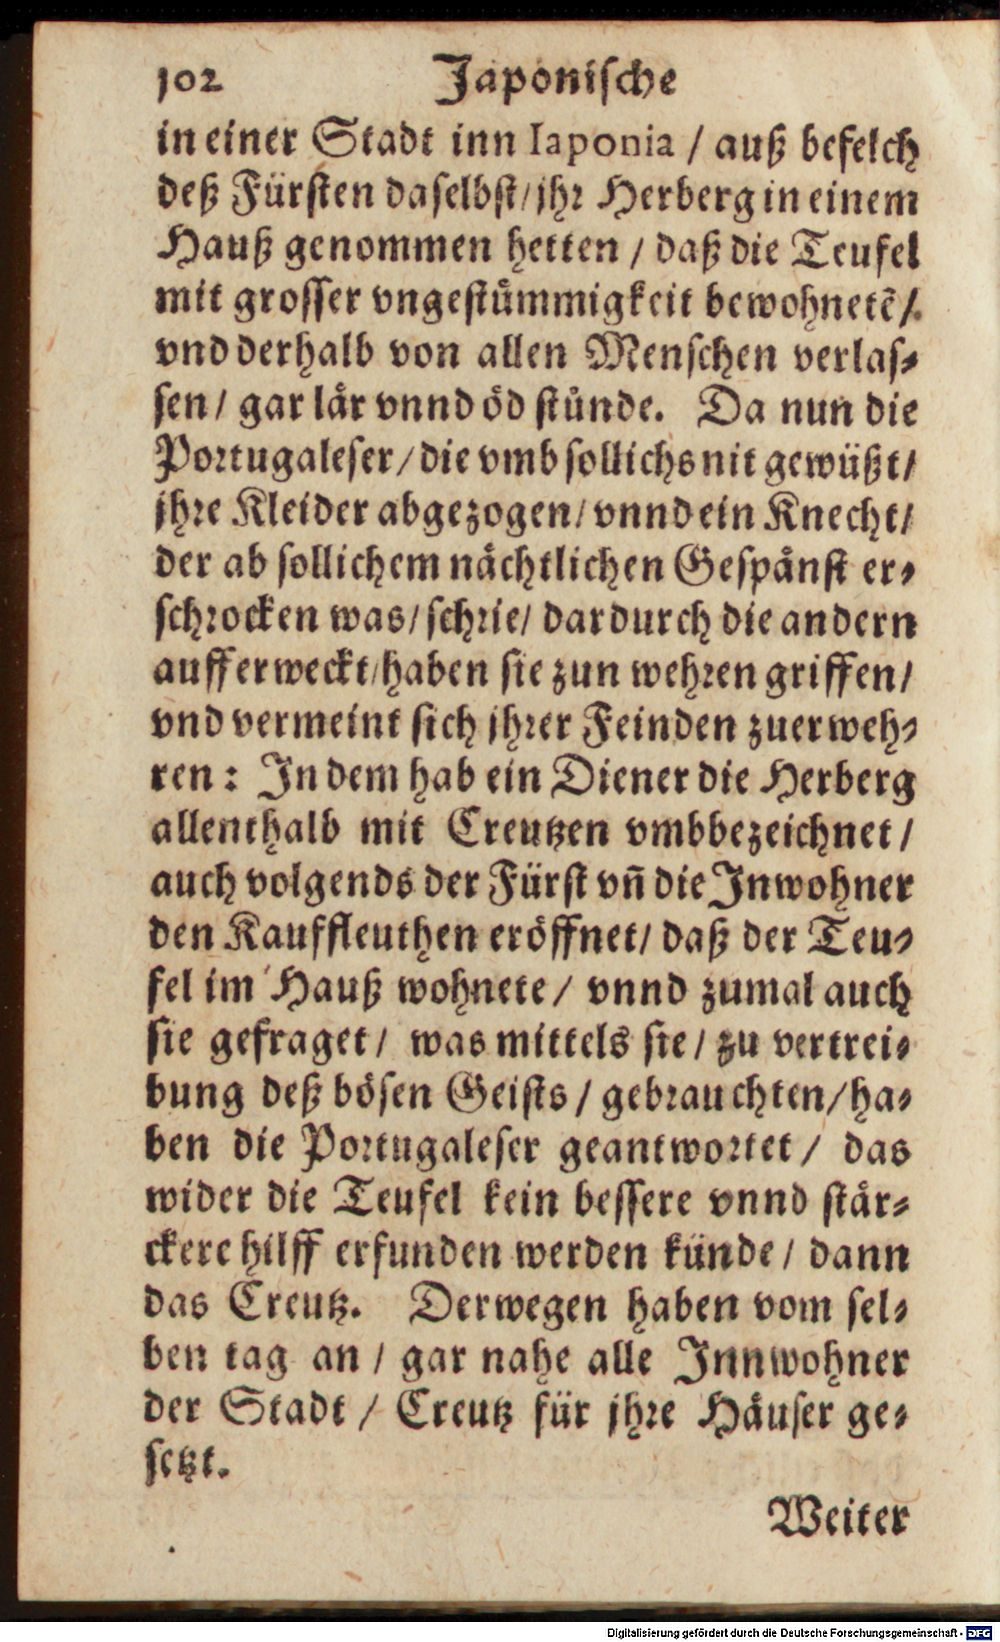 102 Japonische
in einer Stadt inn Iaponia / auß befelch
deß Fürsten daselbst/ jhr Herberg in einem
Hauß genommen hetten / daß die Teufel
mit grosser vngestuͤmmigkeit bewohnetẽ/
vnd derhalb von allen Menschen verlas-
sen/ gar laͤr vnnd oͤd stuͤnde. Da nun die
Portugaleser/ die vmb sollichs nit gewüßt/
jhre Kleider abgezogen/ vnnd ein Knecht/
der ab sollichem naͤchtlichen Gespaͤnst er-
schrocken was/ schrie/ dardurch die andern
aufferweckt/ haben sie zun wehren griffen/
vnd vermeint sich jhrer Feinden zuerweh-
ren: In dem hab ein Diener die Herberg
allenthalb mit Creutzen vmbbezeichnet/
auch volgends der Fürst vñ die Inwohner
den Kauffleuthen eroͤffnet/ daß der Teu-
fel im Hauß wohnete/ vnnd zumal auch
sie gefraget/ was mittels sie/ zu vertrei-
bung deß boͤsen Geists/ gebrauchten/ ha-
ben die Portugaleser geantwortet/ das
wider die Teufel kein bessere vnnd staͤr-
ckere hilff erfunden werden künde/ dann
das Creutz. Derwegen haben vom sel-
ben tag an / gar nahe alle Innwohner
der Stadt / Creutz für jhre Haͤuser ge-
setzt.
Weiter
Digitalisierung gefördert durch die Deutsche Forschungsgemeinschaft - DFG